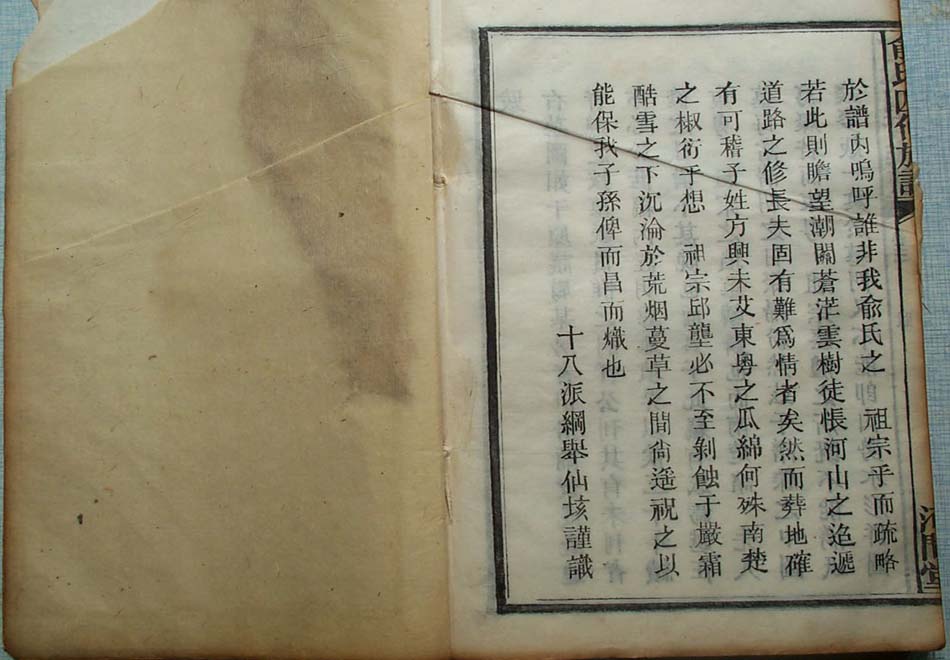 俞氏四修族譜
於譜內嗚呼誰非我俞氏之 祖宗乎而疏略
若此則瞻望潮關蒼茫雲樹徒悵河山之迢遞
道路之修長夫固有難爲情者矣然而葬地確
有可稽子姓方興未艾東粵之瓜綿何殊南楚
之椒衍乎想 祖宗邱壟必不至剝蝕于嚴霜
酷雪之下沉淪於荒烟蔓草之間尙遥祝之以
能保我子孫俾而昌而熾也
十八派綱舉仙垓謹識